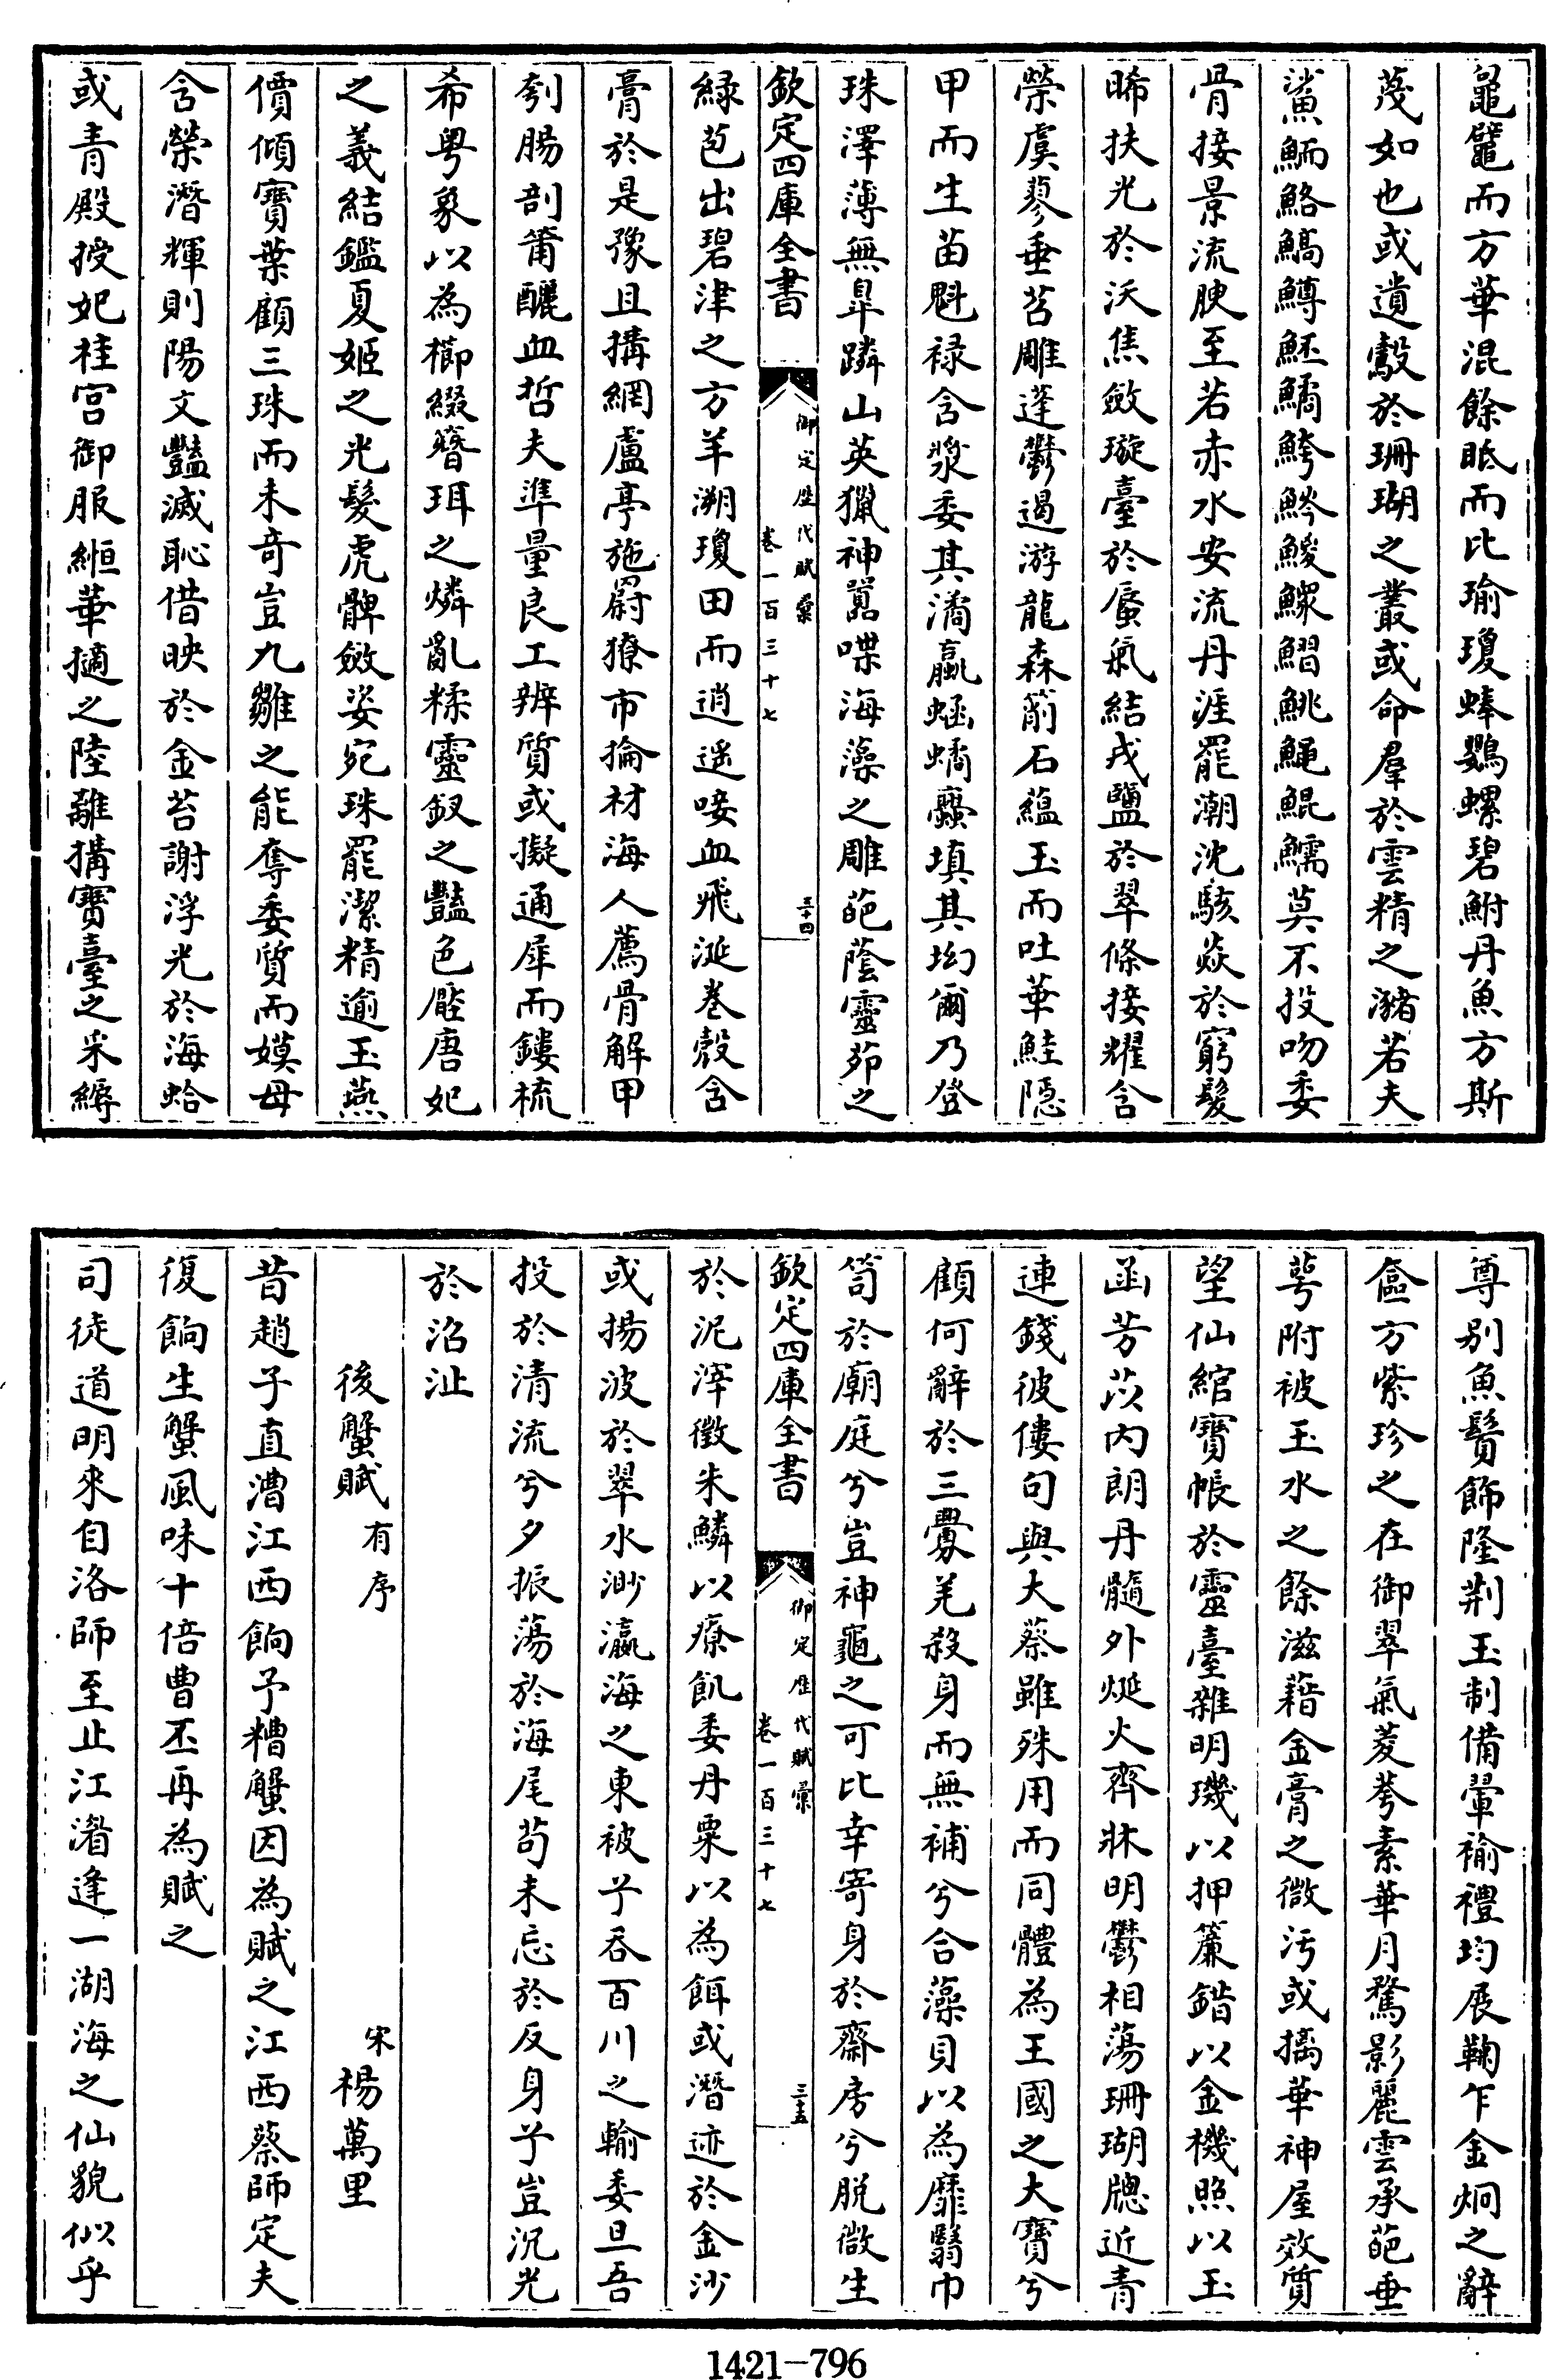 鼂鼊而方華混餘眡而比瑜瓊蜯鸚螺碧鮒丹魚方斯
蔑如也或遺鷇於珊瑚之叢或命羣於雲精之瀦若夫
鯊鮞鮥鰝鱒魾鱊鮬魿鯼鱦鰼鮡鱦鯤鱬莫不投吻委
骨接景流腴至若赤水安流丹涯罷潮沈駭焱於窮髮
晞扶光於沃焦斂璇臺於蜃氣結戎鹽於翠條接耀含
榮虞蓼垂苕雕蓬鬱遏游龍森箾石蘊玉而吐華鮭隠
甲而生苗魁䘵含漿委其潏蠃蜬蟜蠹填其坳爾乃登
珠澤薄無臯躪山英獵神嚣喋海藻之雕葩蔭靈茆之
欽定四庫全書 御定歷代賦彙 卷一百三十七 三十四
緑苞出碧津之方羊溯瓊田而逍遥唼血飛涎巻殼含
膏於是豫且搆網盧亭施罻獠市掄材海人薦骨解甲
刳腸剖簫釃血哲夫準量良工辨質或擬通犀而鏤梳
希粤象以為櫛綴簪珥之燐亂糅靈釵之豔色壓唐妃
之義結鑑夏姬之光髮虎髀斂姿宛珠罷潔精逾玉燕
價傾寳葉顧三珠而未奇豈九雛之能奪委質而嫫母
含榮潛輝則陽文豔滅恥借映於金苔謝浮光於海蛤
或青殿授妃桂宫御服緪華擿之陸離搆寳臺之采縟
尊别魚鬢飾隆荆玉制備翬褕禮均展鞠乍金炯之辭
奩方紫珍之在御翠氣菱荂素華月騖影麗雲承葩垂
萼附被玉水之餘滋藉金膏之微汚或摛華神屋效質
望仙綰寳帳於靈臺雜明璣以押簾錯以金機照以玉
函芳苡内朗丹髓外烻火齊牀明鬱相蕩珊瑚牕近青
連錢彼僂句與大蔡雖殊用而同體為王國之大寳兮
顧何辭於三釁羌殺身而無補兮合藻貝以為靡翳巾
笥於廟庭兮豈神龜之可比幸寄身於齋房兮脱微生
欽定四庫全書 御定歷代賦彙 卷一百三十七 三十五
於泥滓徵朱鱗以療飢委丹粟以為餌或潛迹於金沙
或揚波於翠水渺瀛海之東被兮吞百川之輸委旦吾
投於清流兮夕振蕩於海尾苟未忘於反身兮豈沉光
於沼沚
後蟹賦 有序 宋 楊萬里
昔趙子直漕江西餉予糟蟹因為賦之江西蔡師定夫
復餉生蟹風味十倍曹丕再為賦之
司徒道明來自洛師至止江濱逢一湖海之仙貌似乎
1421-796